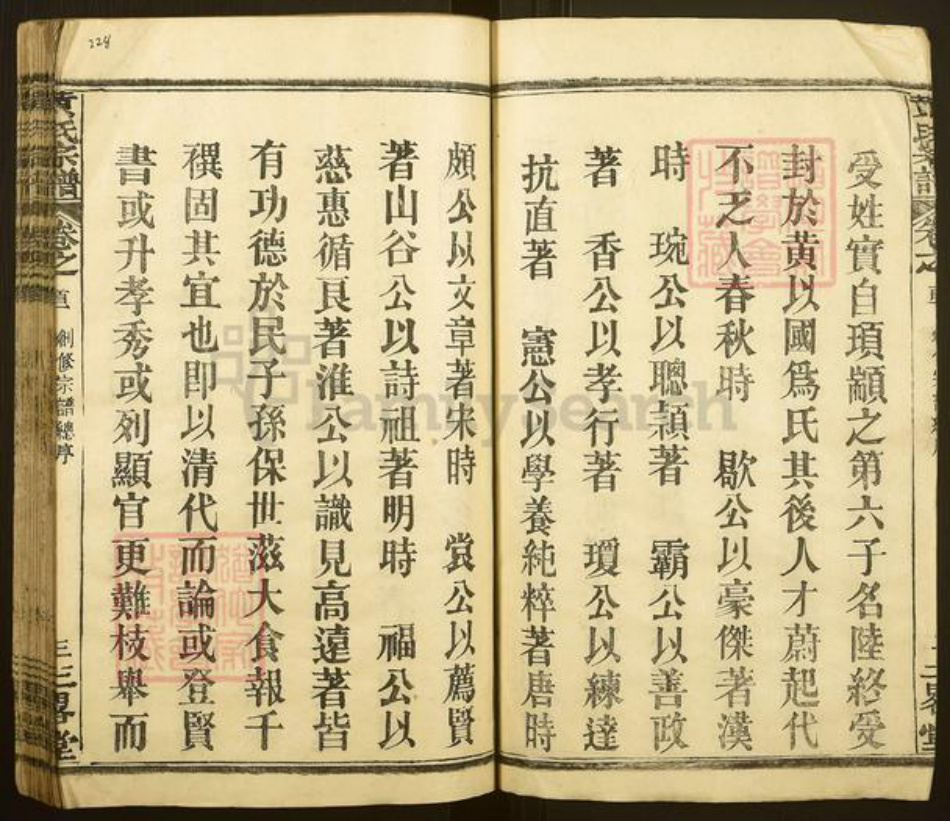 受姓實自頊顓之第六子名陸終受
封於黃以國爲氏其後人才蔚起代
不乏人春秋時　歇公以豪傑著漢
時　琬公以聰穎著　霸公以善政
著　香公以孝行著　瓊公以練達
抗直著　憲公以學養純粹著唐時
頗公以文章著宋時　裳公以薦賢
著山谷公以詩祖著明時　福公以
慈惠循良著淮公以識見高遠著皆
有功德於民子孫保世滋大食報千
禩固其宜也即以清代而論或登賢
書或升孝秀或列顯官更難枝舉而
黃氏宗譜 卷之首 創修宗譜總序 三 三畧堂
228
FamilySearch